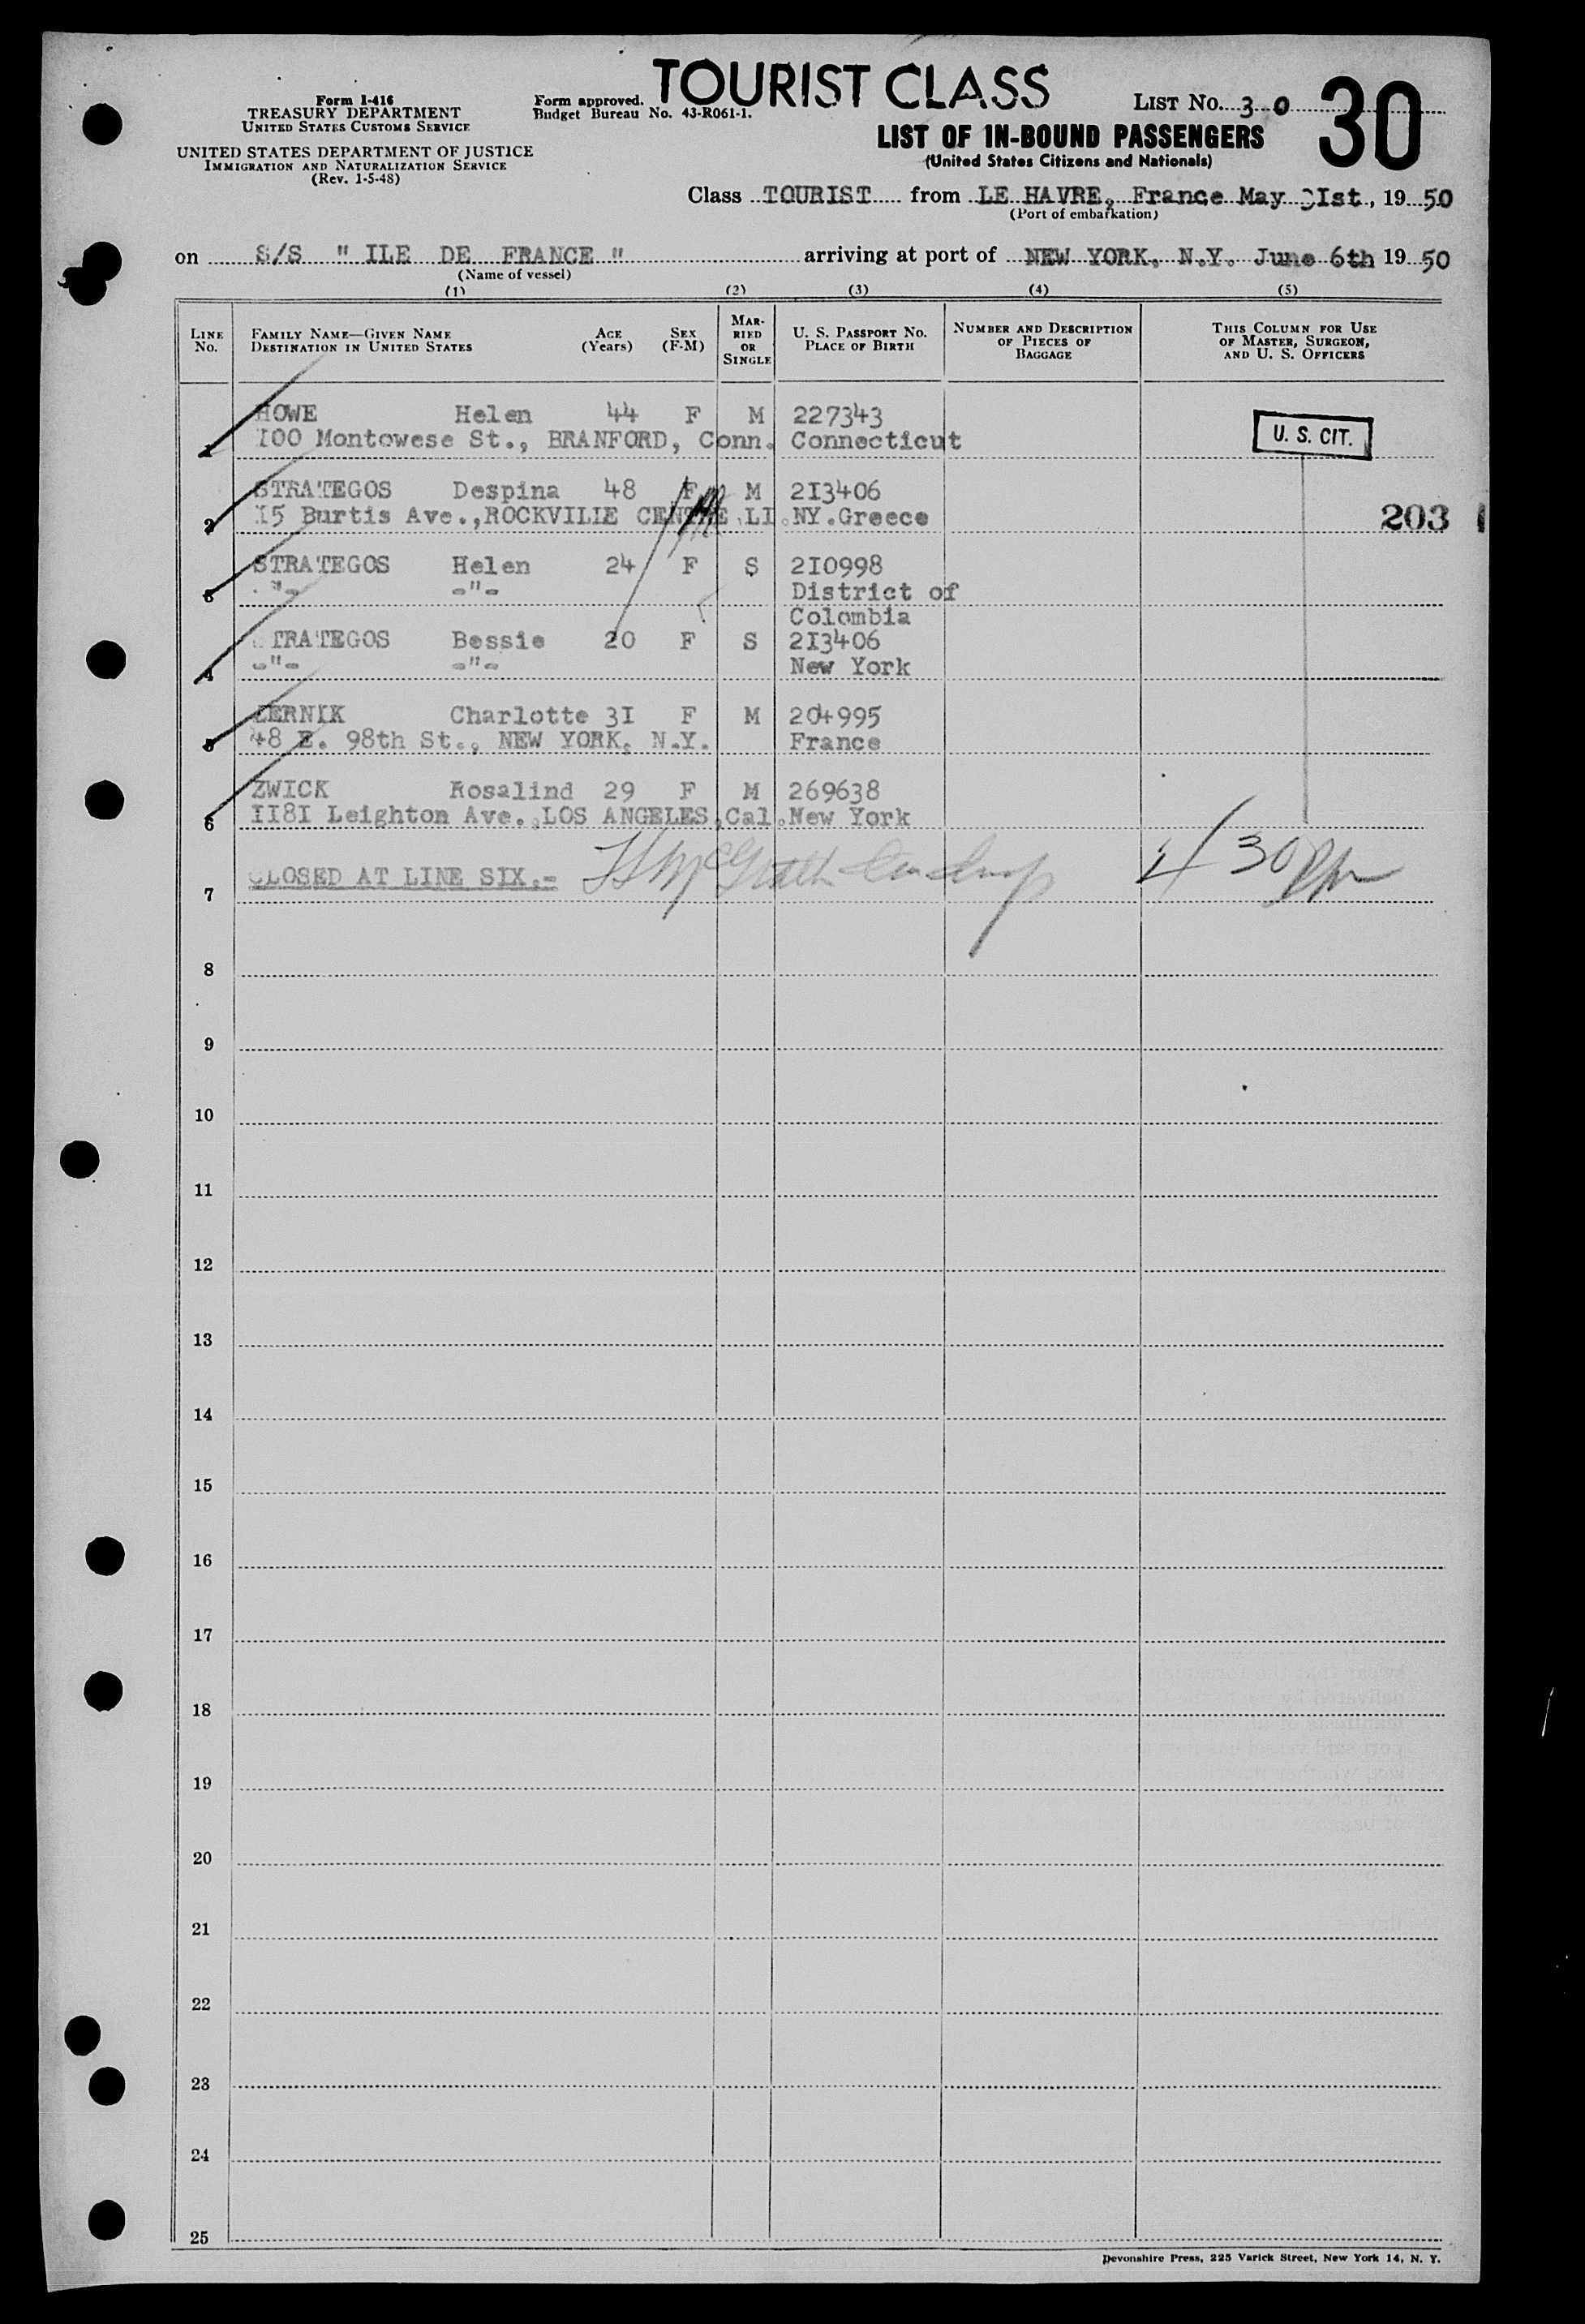 TOURIST CLASS
Form I-416
TREASURY DEPARTMENT
UNITED STATES CUSTOMS SERVICE
UNITED STATES DEPARTMENT OF JUSTICE
IMMIGRATION AND NATURALIZATION SERVICE
(Rev. 1-5-48)
Form approved.
Budget Bureau No. 43-R061-1.
LIST No. 3 0
30
LIST OF IN-BOUND PASSENGERS
(United States Citizens and Nationals)
Class TOURIST from LE HAVRE, France May 3Ist, 19 50
(Port of embarkation)
on S/S " ILE DE FRANCE " arriving at port of NEW YORK, N.Y. June 6th 19 50
(Name of vessel)
(1) (2) (3) (4) (5)
LINE No.
FAMILY NAME—GIVEN NAME
DESTINATION IN UNITED STATES
AGE (Years)
SEX (F-M)
MARRIED OR SINGLE
U. S. PASSPORT No.
PLACE OF BIRTH
NUMBER AND DESCRIPTION OF PIECES OF BAGGAGE
THIS COLUMN FOR USE OF MASTER, SURGEON, AND U. S. OFFICERS
HOWE Helen 44 F M 227343
1 I00 Montowese St., BRANFORD, Conn. Connecticut
U. S. CIT.
STRATEGOS Despina 48 F M 2I3406
2 I5 Burtis Ave.,ROCKVILLE CENTRE LI.NY.Greece
203
STRATEGOS Helen 24 F S 2I0998
3 -"- -"- District of
Colombia
STRATEGOS Bessie 20 F S 2I3406
4 -"- -"- New York
ZERNIK Charlotte 3I F M 204995
5 48 E. 98th St., NEW YORK, N.Y. France
ZWICK Rosalind 29 F M 269638
6 II8I Leighton Ave.,LOS ANGELES,Cal.New York
7 CLOSED AT LINE SIX.-
8
9
10
11
12
13
14
15
16
17
18
19
20
21
22
23
24
25
Devonshire Press, 225 Varick Street, New York 14, N. Y.